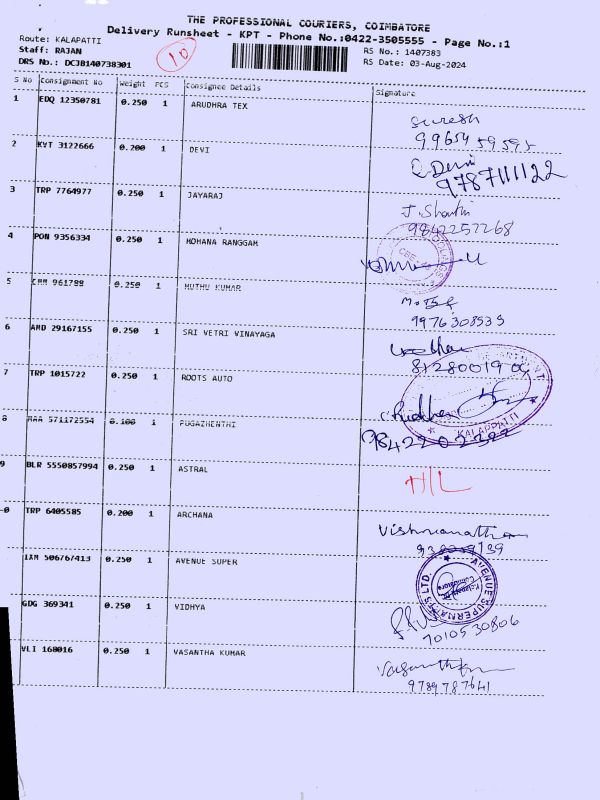 THE PROFESSIONAL COURIERS, COIMBATORE
Delivery Runsheet - KPT - Phone No.:0422-3505555 - Page No.:1
Route: KALAPATTI
Staff: RAJAN
DRS No.: DCJB140738301
10
RS No.: 1407383
RS Date: 03-Aug-2024
S No Consignment No Weight PCS Consignee Details Signature
1 EDQ 12350781 0.250 1 ARUDHRA TEX
Suresh
99654 59595
2 KVT 3122666 0.200 1 DEVI
Devi
9787111122
3 TRP 7764977 0.250 1 JAYARAJ
J. Shanthi
9842257268
4 PON 9356334 0.250 1 MOHANA RANGGAM
5 CHM 961788 0.250 1 MUTHU KUMAR
9976308535
6 AMD 29167155 0.250 1 SRI VETRI VINAYAGA
8128001904
7 TRP 1015722 0.250 1 ROOTS AUTO
KALAPPATTI
8 MAA 571172554 0.100 1 PUGAZHENTHI
9842202322
9 BLR 5550857994 0.250 1 ASTRAL
H/L
0 TRP 6405585 0.200 1 ARCHANA
Vishwanathan
IXM 506767413 0.250 1 AVENUE SUPER
AVENUE SUPERMARTS LTD.
Coimbatore
GDG 369341 0.250 1 VIDHYA
7010530806
VLI 160016 0.250 1 VASANTHA KUMAR
9789787641